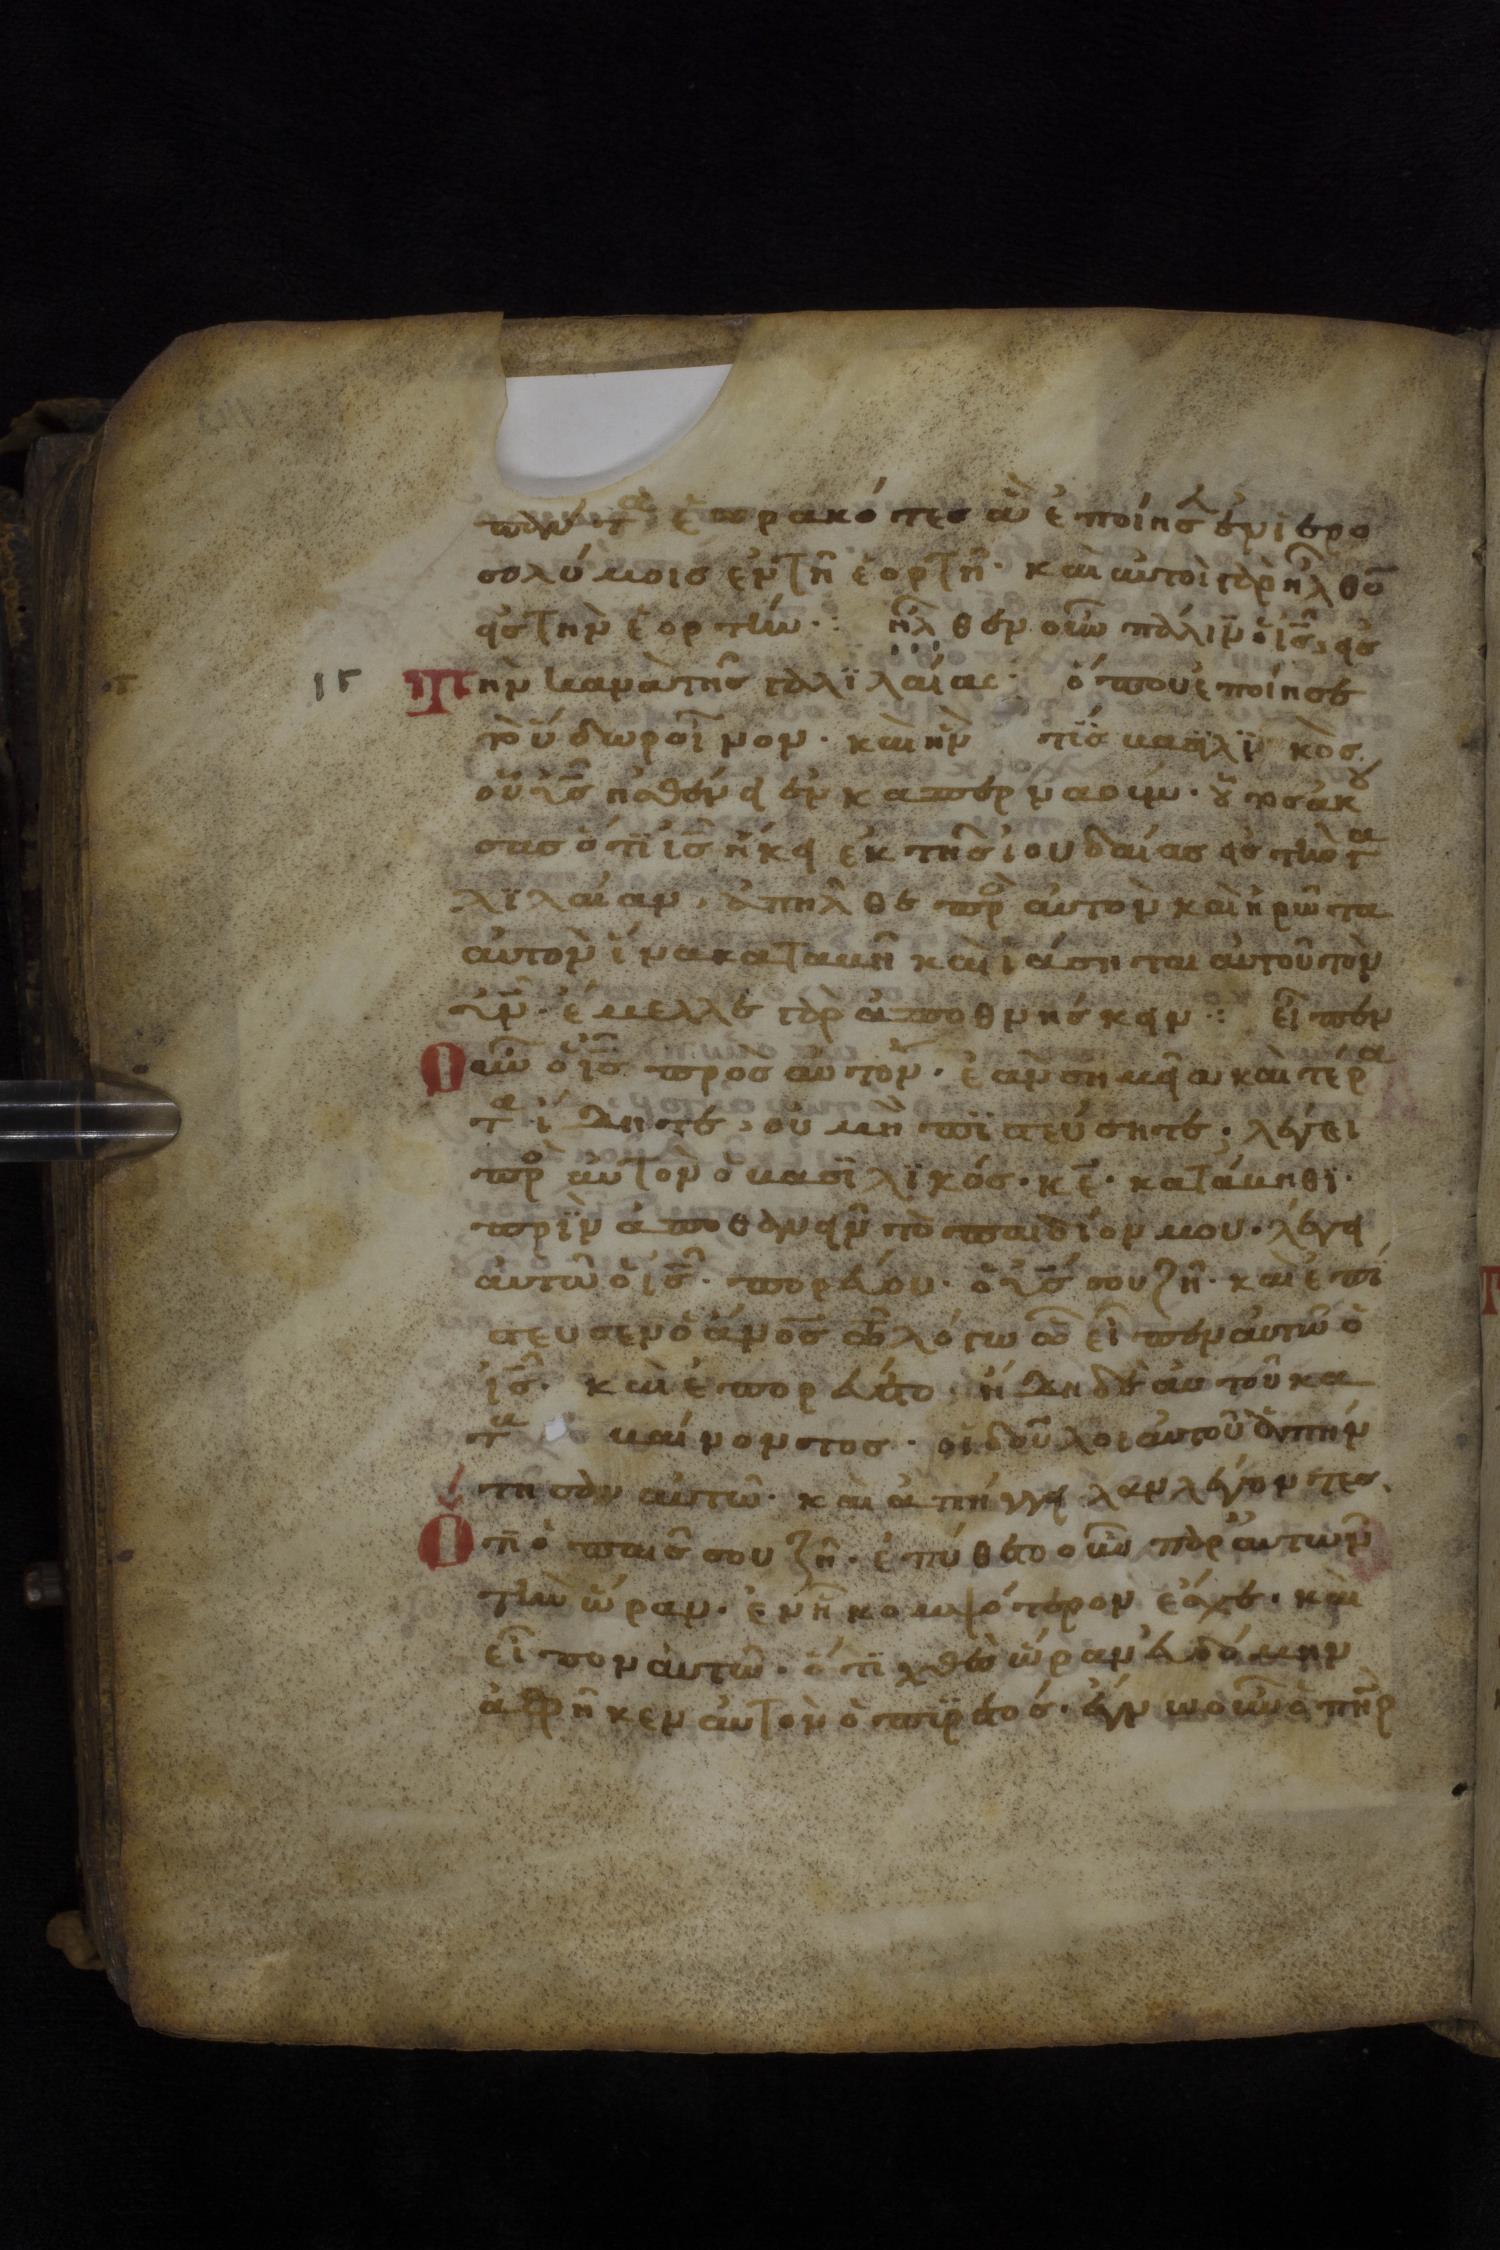 πάντα ἑωρακότες ἃ ἐποίησεν ἐν ἱερο
σολύμοις ἐν τῆ ἑορτῆ· καὶ αὐτοὶ γὰρ ἦλθο̅
εἰς τὴν ἑορτήν·: ἦλθεν οὖν πάλιν ὁ ις̅ εἰς
ιγ τὴν κανὰ τῆς γαλιλαίας· ὅπου ἐποίησε
τὸ ὕδωρ οἶνον· καὶ ἦν τίς βασιλικὸς
οὗ ὁ υς̅ ἠσθένει ἐν καπερναούμ· οὗτος ἀκού
σας ὅτι ις̅ ἥκει ἐκ τῆς ἰουδαίας εἰς τὴν γα
λιλαίαν, ἀπῆλθε πρὸς αὐτὸν καὶ ἠρώτα
αὐτὸν ἵνα καταβῆ καὶ ἰάσηται αὐτοῦ τὸν
υν̅· ἔμελλε γὰρ ἀποθνήσκειν·: εἶπεν
οὖν ὁ ις̅ πρὸς αὐτόν· ἐὰν μὴ σημεῖα καὶ τέρα
τα ἴδητε, οὐ μὴ πιστεύσητε· λέγει
πρὸς αὐτὸν ὁ βασιλικός· κε̅· κατάβηθι·
πρὶν ἀποθανεῖν τὸ παιδίον μου· λέγει
αὐτῶ ὁ ις̅· πορεύου· ὁ υς̅ σου ζῆ· καὶ ἐπί
στευσεν ὁ ἄνος̅ τῶ λόγω ὧ εἶπεν αὐτῶ ὁ
ις̅· καὶ ἐπορεύετο· ἤδη δὲ αὐτοῦ κα
τα βαίνοντος· οἱ δοῦλοι αὐτοῦ ἀπήν
τησαν αὐτῶ· καὶ ἀπήγγειλαν λέγοντες,
ὅτι ὁ παῖς σου ζῆ· ἐπύθετο οὖν παρ' αὐτῶν
τὴν ὥραν· ἐν ἧ κομψότερον ἔσχε· καὶ
εἶπον αὐτῶ· ὅτι χθὲς ὥραν ἑβδόμην
ἀφῆκεν αὐτὸν ὁ πυρετός· ἔγνω οὖν ὁ πηρ̅